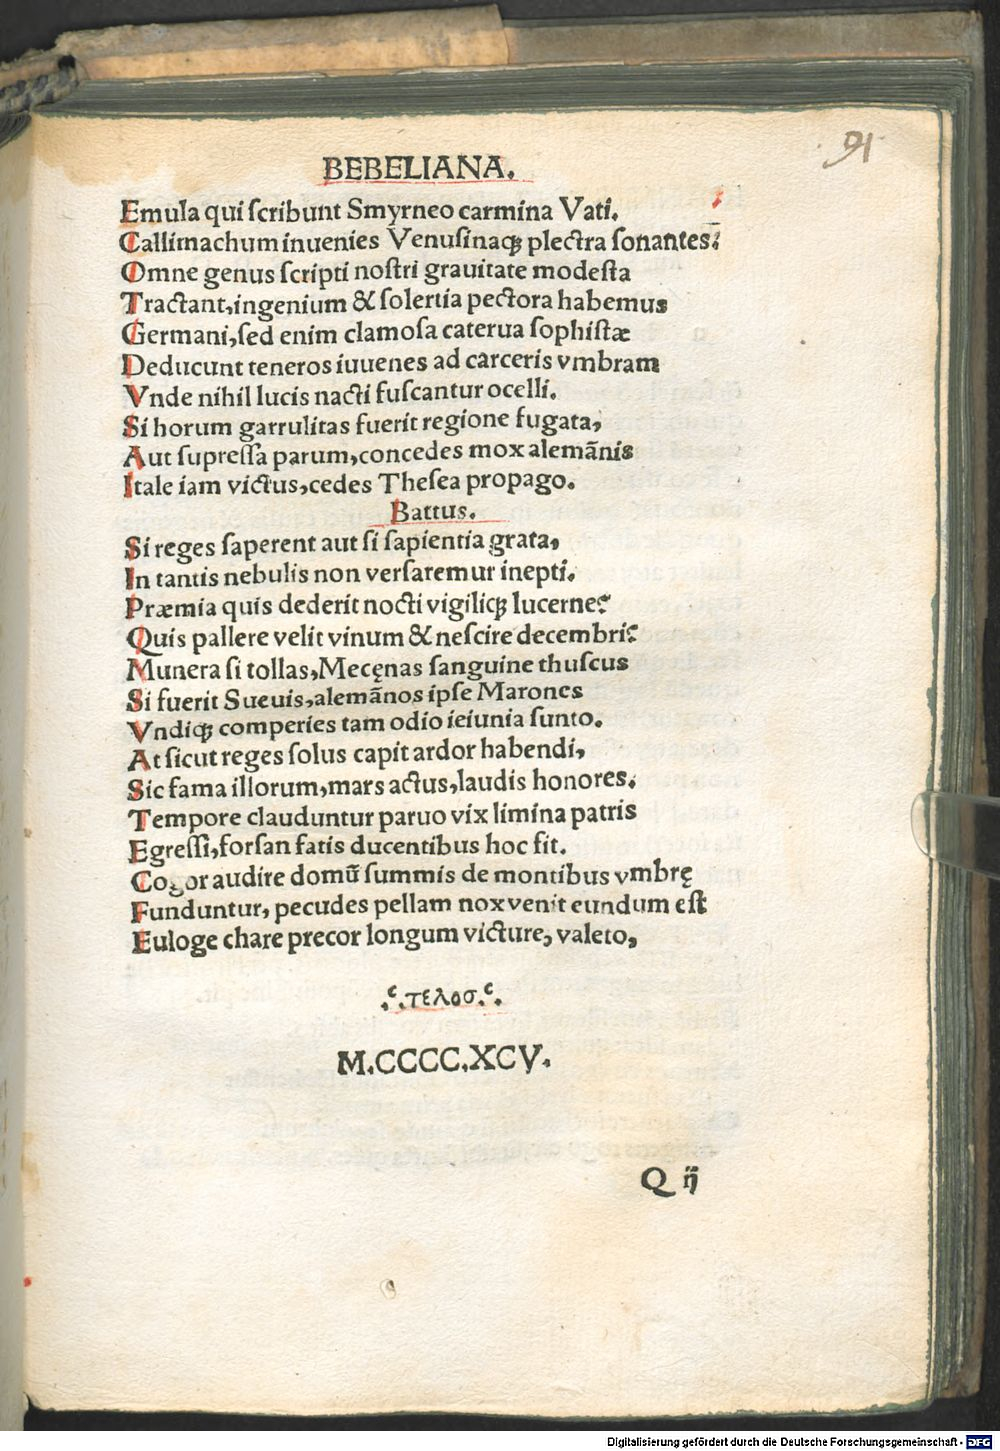 91
BEBELIANA.
Emula qui ſcribunt Smyrneo carmina Vati.
Callimachum inuenies Venuſinaqꝫ plectra ſonantes:
Omne genus ſcripti noſtri grauitate modeſta
Tractant,ingenium & ſolertia pectora habemus
Germani,ſed enim clamoſa caterua ſophiſtæ
Deducunt teneros iuuenes ad carceris vmbram
Vnde nihil lucis nacti fuſcantur ocelli.
Si horum garrulitas fuerit regione fugata,
Aut ſupreſſa parum,concedes mox alemãnis
Itale iam victus,cedes Theſea propago.
Battus.
Si reges ſaperent aut ſi ſapientia grata,
In tantis nebulis non verſaremur inepti.
Præmia quis dederit nocti vigiliqꝫ lucerne?
Quis pallere velit vinum & neſcire decembri?
Munera ſi tollas,Mecęnas ſanguine thuſcus
Si fuerit Sueuis,alemãnos ipſe Marones
Vndiqꝫ comperies tam odio ieiunia ſunto.
At ſicut reges ſolus capit ardor habendi,
Sic fama illorum,mars actus,laudis honores.
Tempore clauduntur paruo vix limina patris
Egreſſi,forſan fatis ducentibus hoc fit.
Cogor audire domũ ſummis de montibus vmbrę
Funduntur, pecudes pellam nox venit eundum eſt
Euloge chare precor longum victure, valeto,
.ͨ.τελοσ.ͨ.
M.CCCC.XCV.
Q ij
Digitalisierung gefördert durch die Deutsche Forschungsgemeinschaft - DFG